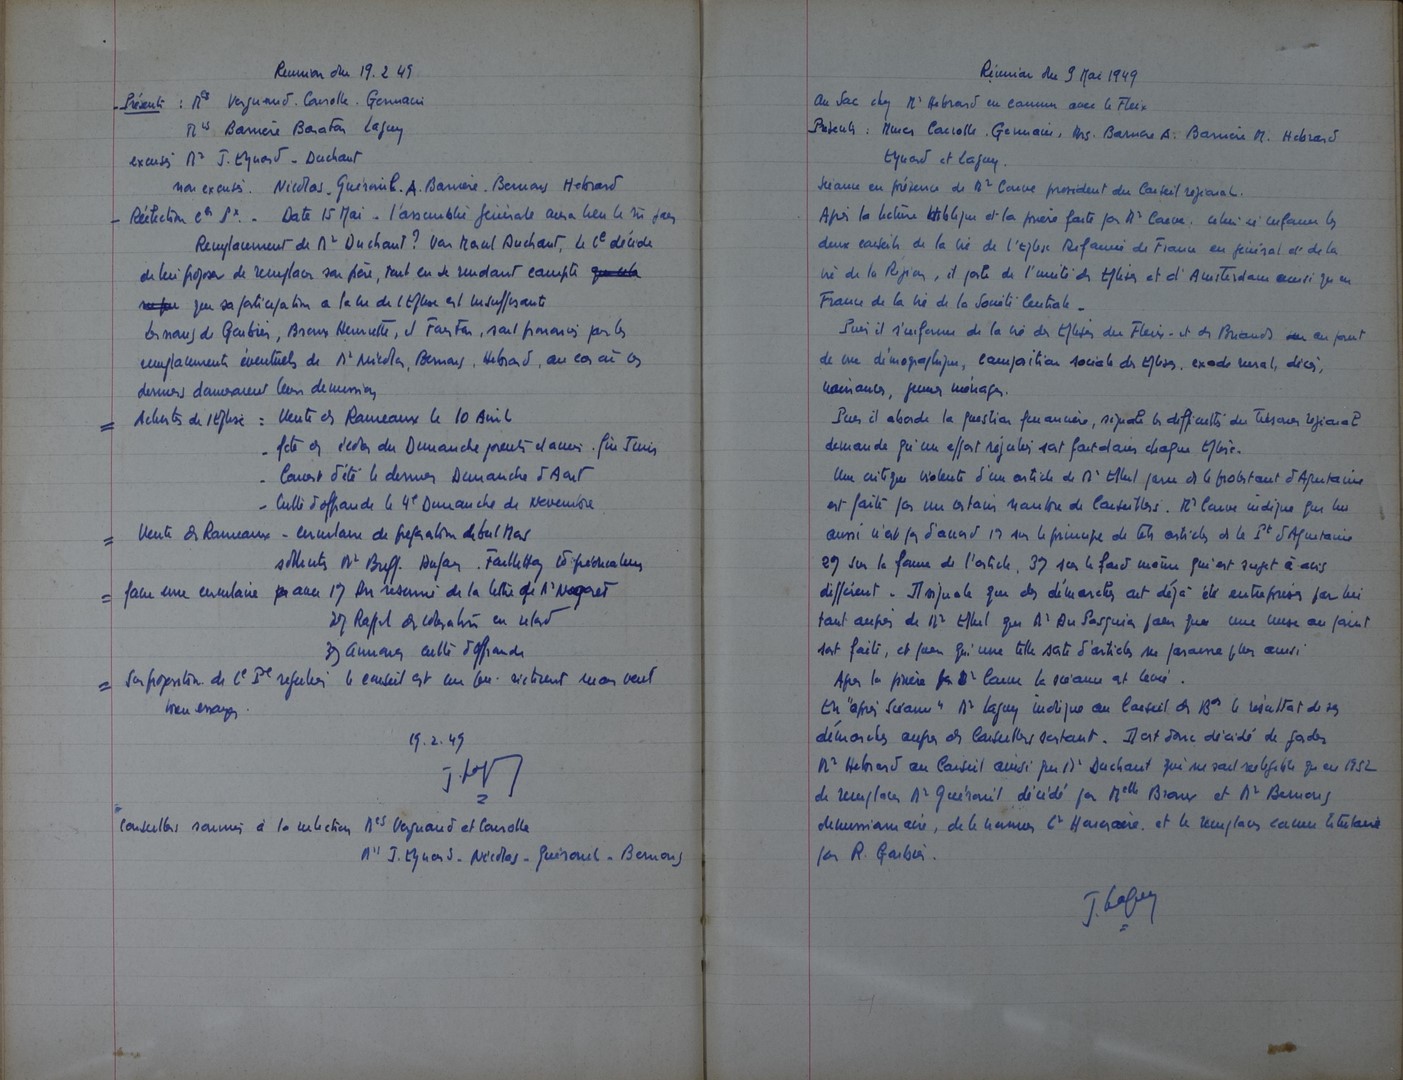 Reunion du 19.2.49
Présents : Mes Vergnaud. Carolle. Germain
Mrs Barrière Baraton Laguy
excusés Mr J. Eynard - Duchant
non excusés. Nicolas - Guéraud. A. Barrière. Hebrard
- Réélection - Date 15 Mai - l'assemblée générale aura lieu le
Remplacement de Mr Duchant? Duchant, le Cl décide
de lui proposer de remplacer son père, tout en se rendant compte
que sa participation a la vie de l'Eglise est insuffisante
Les noms de Henriette, et sont prononcés pour les
remplacements éventuels de Mr Nicolas, Hebrard, au cas où ces
derniers donneraient leur demission
= Activités de l'Eglise : Vente des Rameaux le 10 Avril
- fête des écoles du Dimanche parents et amis. fin Juin
- Concert d'été le dernier Dimanche d'Aout
- Culte d'offrande le 4e Dimanche de Novembre
= Vente des Rameaux - circulaire de préparation debut Mars
= faire une circulaire avec 1) Un resumé de la lettre de Mr
2) Rappel des cotisations en retard
3) Annonce culte d'offrande
= Sur proposition de le conseil est
bien essayer.
19.2.49
Conseillers soumis à la réélection Mes Vergnaud et Carolle
Mrs J. Eynard - Nicolas - Guéraud -
Réunion du 9 Mai 1949
Au Sac chez Mr Hebrard en commun avec le Fleix
Présents : Mmes Carolle. Germain, Mrs. Barrière A. Barrière M. Hebrard
Eynard et Laguy.
Séance en présence de Mr Cauve president du Conseil régional.
Après la lecture biblique et la prière faite par Mr Cauve. celui-ci informe les
deux conseils de la vie de l'Eglise Réformée de France en général et de la
vie de la Région, il parle de l'unité des Eglises et d'Amsterdam ainsi qu'en
France de la vie de la Société Centrale -
Puis il s'informe de la vie des Eglises du Fleix - et des Briands au point
de vue démographique, composition sociale des Eglises, exode rural, décès,
naissances, jeunes ménages.
Puis il aborde la question financière, signale les difficultés du Trésorier régional et
demande qu'un effort régulier soit fait dans chaque Eglise.
Une critique violente d'un article de Mr paru ds le protestant d'Aquitaine
est faite par un certain nombre de Conseillers. Mr Cauve indique que lui
aussi n'est pas d'accord 1) sur le principe de tels articles ds le Pt d'Aquitaine
2) sur la forme de l'article, 3) sur le fond même qui est sujet à avis
différent - Il signale que des démarches ont déjà été entreprises par lui
tant auprès de Mr que Mr Du Pasquier pour que une mise au point
soit faite, et pour qu'une telle sorte d'articles ne paraisse plus ainsi
Après la prière par Mr Cauve la séance est levée.
En "après séance" Mr Laguy indique au Conseil des le résultat de ses
démarches auprès des Conseillers sortant. Il est donc décidé de garder
Mr Hebrard au Conseil ainsi que Mr Duchant qui ne sont rééligibles qu'en 1952
de remplacer Mr Guéraud décédé par Melle et Mr
demissionnaire, de le nommer Cr Honoraire. et le remplacer comme titulaire
par R.
J. Laguy